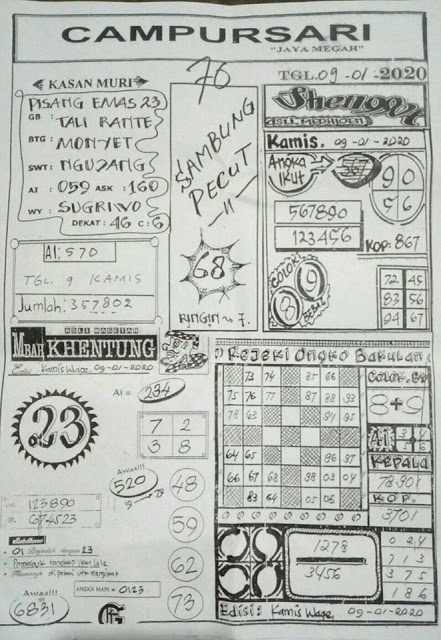 CAMPURSARI
"JAYA MEGAH"
TGL.09-01-2020
KASAN MURI
PISANG EMAS 23
GB : TALI RANTE
BTG : MONYET
SWT : NGUDANG
AI : 059 ASK : 160
WY : SUGRIWO
DEKAT : 46 C : 6
AI : 570
TGL. 9 KAMIS
Jumlah : 357802
76
SAMBUNG
PECUT
-11-
68
RINGIN ~ 7.
ASLI MEDIHOEN
Kamis. 09-01-2020
Angka
Ikut
567
90
56
567890
123456
KOP: 867
COLOK
8 9
BEBAS
72 45
83 56
94 67
ASLI MAGETAN
MBAH KHENTUNG
Edisi Kamis Wage, 09-01-2020
AI = 234
.23
7 2
3 8
Awas!!!
520
19 79
48
59
62
73
123890
674523
01 Berjodoh dengan 23
ANGKA MAIN = 0123
Awas!!!
6831
Rejeki Ongko Bakulan
73 74 85 86
75 76 77 87 88 93
78 63 94 95
64 65 96 97
66 67 68 98 03 04
83 64 05 06
COLOK. 84
8+9
AI
KEPALA
78901
KOP.
3701
1278
3456
0 2 4
7 1 3
3 7 5
1 8 6
Edisi : Kamis Wage, 09-01-2020